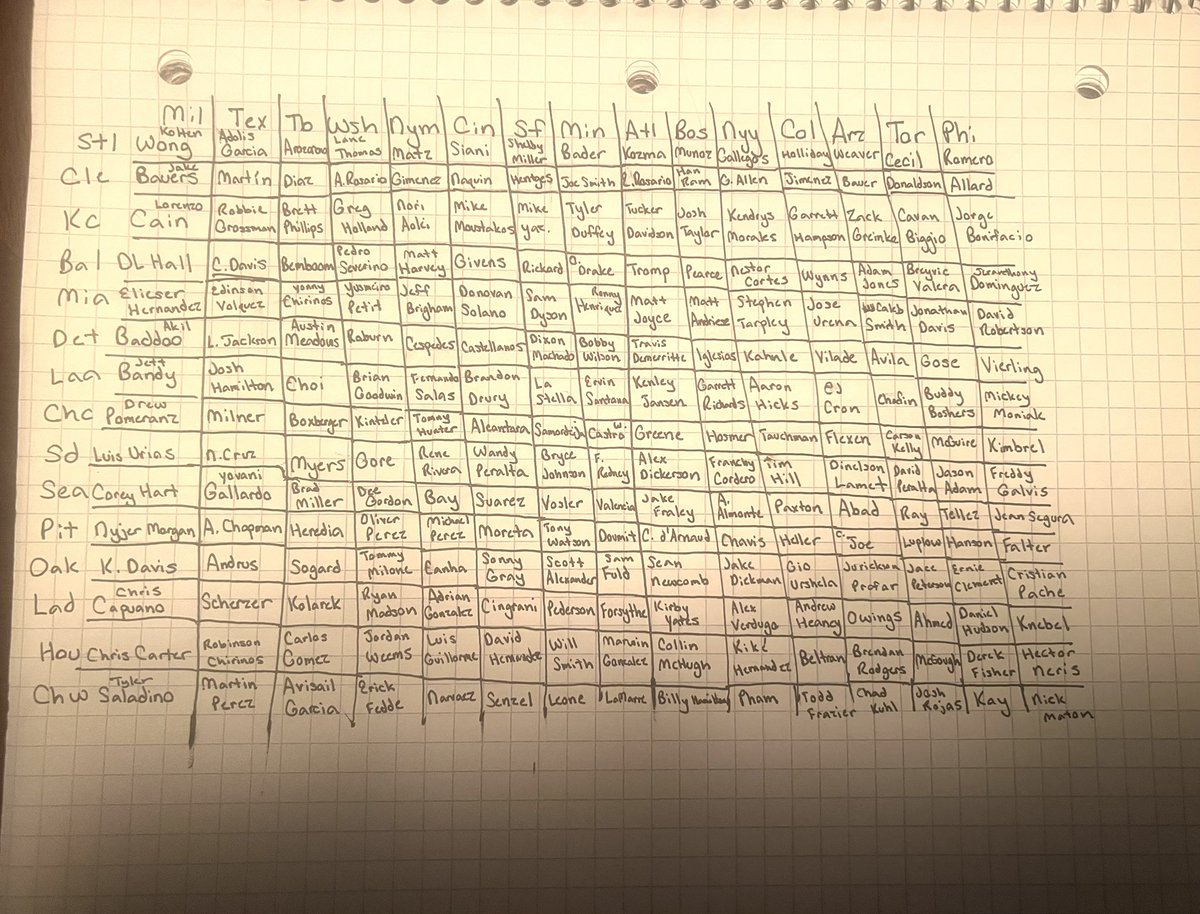 Mil Tex Tb Wsh Nym Cin Sf Min Atl Bos Nyy Col Arz Tor Phi
Stl Kolten Wong Adolis Garcia Arozarena Lane Thomas Matz Siani Shelby Miller Bader Kozma Munoz Gallegos Holliday Weaver Cecil Romero
Cle Jake Bauers Martin Diaz A.Rosario Gimenez Naquin Hentges Joe Smith E.Rosario Han Ram G. Allen Jimenez Bauer Donaldson Allard
Kc Lorenzo Cain Robbie Grossman Brett Phillips Greg Holland Nori Aoki Mike Moustakas Mike Yas. Tyler Duffey Tucker Davidson Josh Taylor Kendrys Morales Garrett Hampson Zack Greinke Cavan Biggio Jorge Bonifacio
Bal DL Hall C. Davis Bemboom Pedro Severino Matt Harvey Givens Rickard O. Drake Tromp Pearce Nestor Cortes Wynns Adam Jones Breyvic Valera Seranthony Dominguez
Mia Elieser Hernandez Edinson Volquez Yonny Chirinos Yusmeiro Petit Jeff Brigham Donovan Solano Sam Dyson Ronny Henriquez Matt Joyce Matt Andriese Stephen Tarpley Jose Urena Caleb Smith Jonathan Davis David Robertson
Det Akil Baddoo L. Jackson Austin Meadows Raburn Cespedes Castellanos Dixon Machado Bobby Wilson Travis Demerritte Iglesias Kahnle Vilade Avila Gose Vierling
Laa Jett Bandy Josh Hamilton Choi Brian Goodwin Fernando Salas Brandon Drury La Stella Ervin Santana Kenley Jansen Garrett Richards Aaron Hicks CJ Cron Chafin Buddy Boshers Mickey Moniak
Chc Drew Pomeranz Milner Boxberger Kintzler Tommy Hunter Alcantara Samardzija W. Castro Greene Hosmer Tauchman Flexen Carson Kelly McGuire Kimbrel
Sd Luis Urias N.Cruz Myers Gore Rene Rivera Wandy Peralta Bryce Johnson F. Rodney Alex Dickerson Franchy Cordero Tim Hill Dinelson Lamet David Peralta Jason Adam Freddy Galvis
Sea Corey Hart Yovani Gallardo Brad Miller Dee Gordon Bay Suarez Vosler Valencia Jake Fraley A. Almonte Paxton Abad Ray Tellez Jean Segura
Pit Nyjer Morgan A. Chapman Heredia Oliver Perez Michael Perez Moreta Tony Watson Doumit C. d'Arnaud Chavis Heller C. Joe Luplow Hanson Falter
Oak K. Davis Andrus Sogard Tommy Milone Canha Sonny Gray Scott Alexander Sam Fuld Sean Newcomb Jake Diekman Gio Urshela Jurickson Profar Jace Peterson Ernie Clement Cristian Pache
Lad Chris Capuano Scherzer Kolarek Ryan Madson Adrian Gonzalez Cingrani Pederson Forsythe Kirby Yates Alex Verdugo Andrew Heaney Owings Ahmed Daniel Hudson Knebel
Hou Chris Carter Robinson Chirinos Carlos Gomez Jordan Weems Luis Guillorme David Hernandez Will Smith Marwin Gonzalez Collin McHugh Kiké Hernandez Beltran Brendan Rodgers McGough Derek Fisher Hector Neris
Chw Tyler Saladino Martin Perez Avisail Garcia Erick Fedde Narvaez Senzel Leone LaMarre Billy Hamilton Pham Todd Frazier Chad Kuhl Josh Rojas Kay Nick Maton